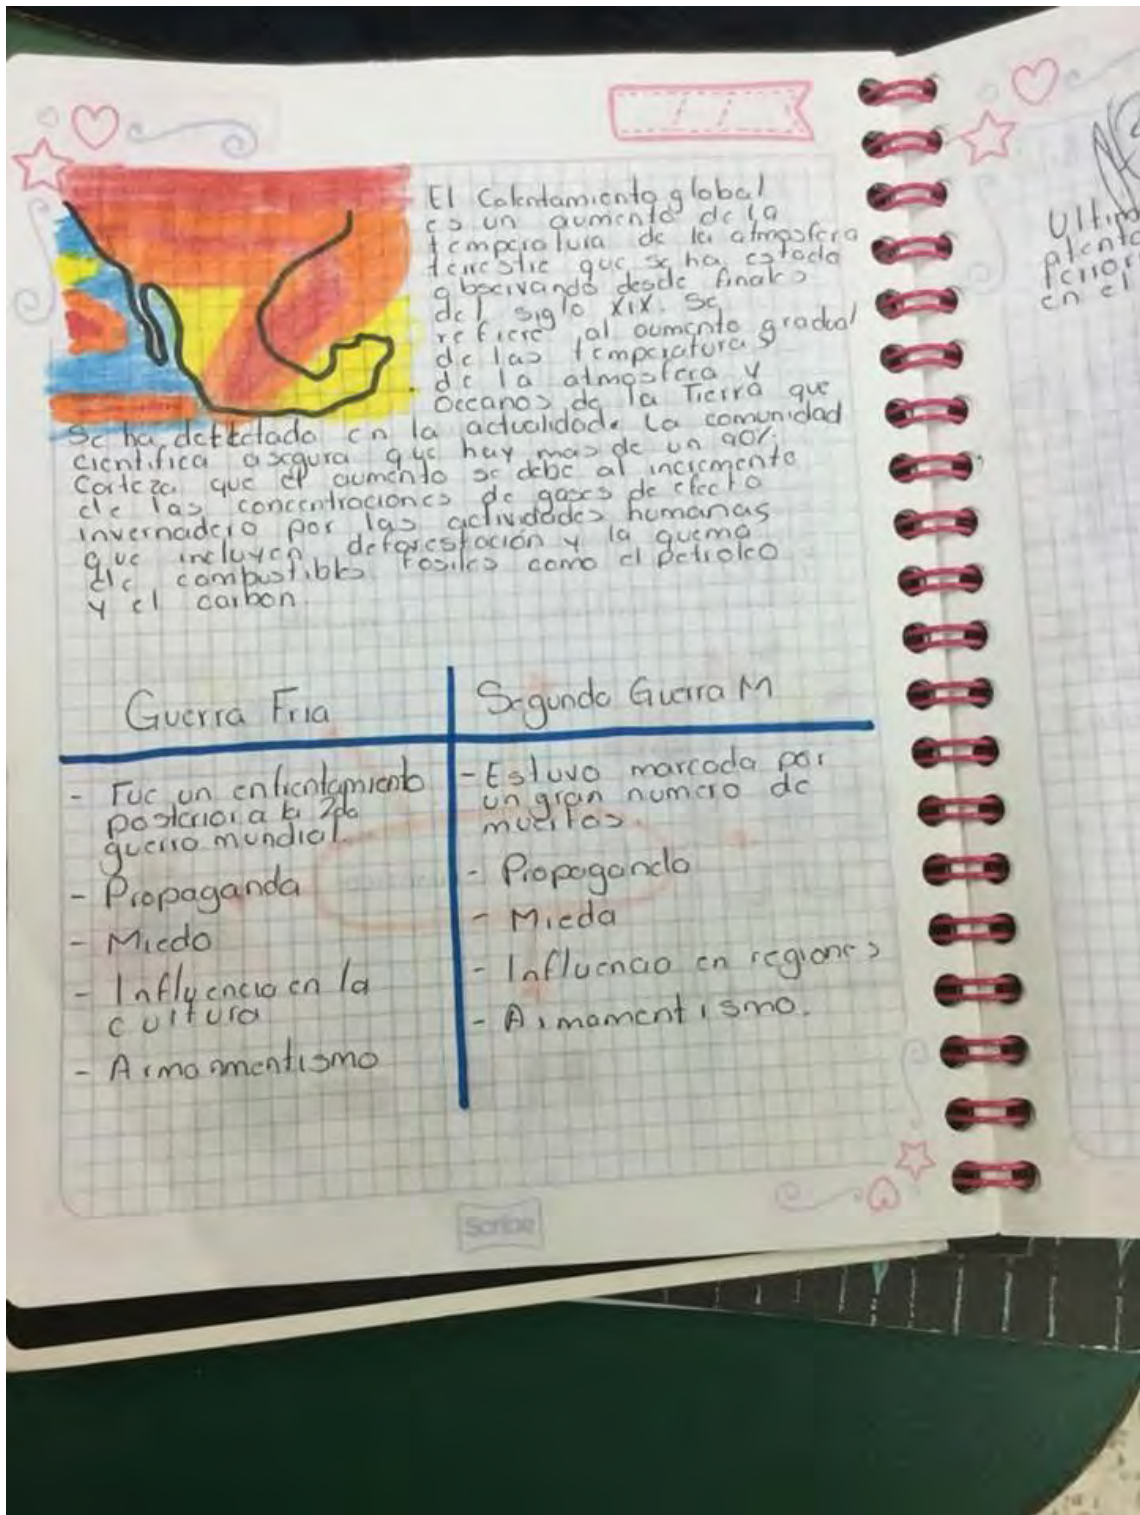 El Calentamiento global
es un aumento de la
temperatura de la atmosfera
terrestre que se ha estado
observando desde finales
del siglo XIX. Se
refiere al aumento gradual
de las temperaturas
de la atmosfera y
Oceanos de la Tierra que
Se ha detectado en la actualidad. La comunidad
cientifica asegura que hay mas de un 90%
Corteza que el aumento se debe al incremento
de las concentraciones de gases de efecto
invernadero por las actividades humanas
que incluyen deforestación y la quema
de combustibles fosiles como el petroleo
y el carbon.
Guerra Fria
- Fue un enfrentamiento
posterior a la 2da
guerra mundial.
- Propaganda
- Miedo
- Influencia en la
cultura
- Armamentismo
Segunda Guerra M
- Estuvo marcada por
un gran numero de
muertos.
- Propaganda
- Mieda
- Influencia en regiones
- Armamentismo.
Scribe
en el